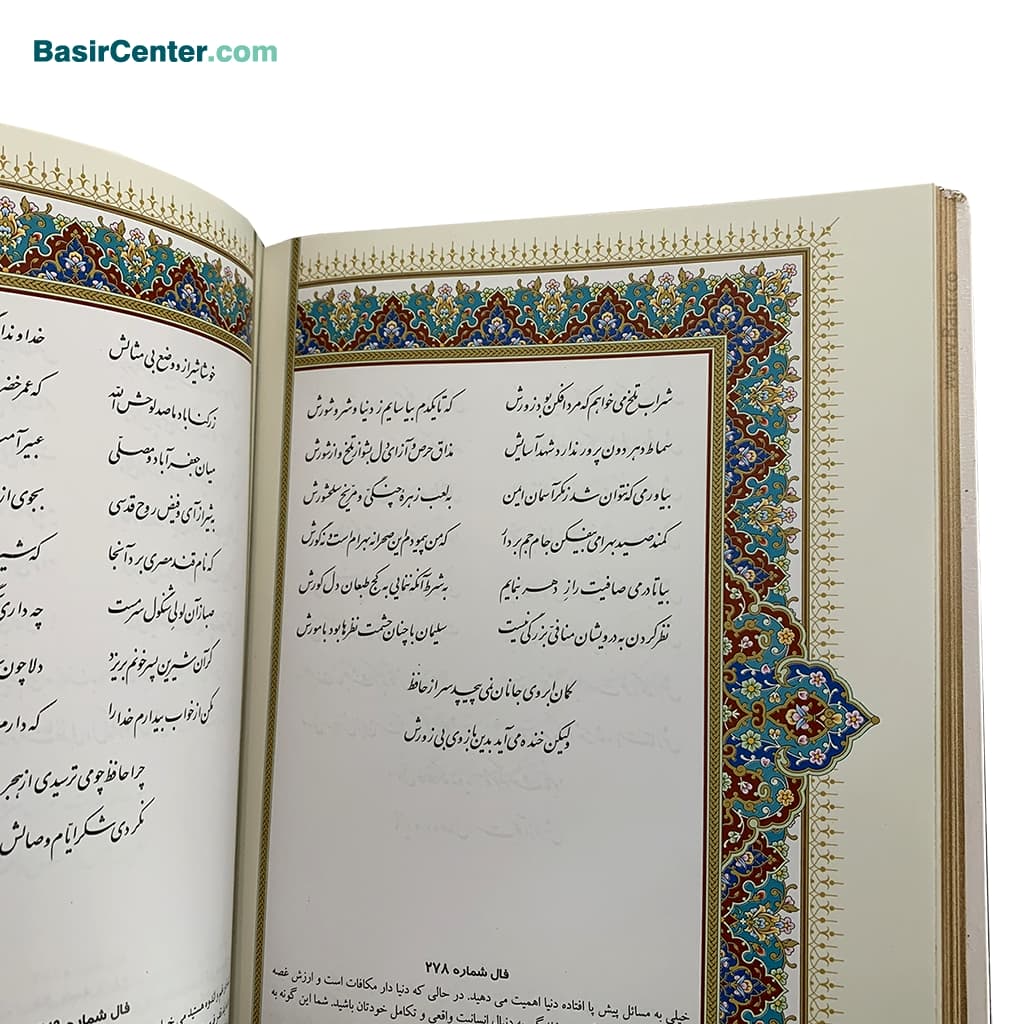 BasirCenter.com
شراب تلخ می خواهم که مرد افکن بود زورش که تا یکدم بیاسایم ز دنیا و شر و شورش
سماط دهر دون پرور ندارد شهد آسایش مذاق حرص و آز ای دل بشو از تلخ و از شورش
بیاور می که نتوان شد ز مکر آسمان ایمن به لعب زهره چنگی و مریخ سلحشورش
کمند صید بهرامی بیفکن جام جم بردار که من پیمودم این صحرا نه بهرام است و نه گورش
بیا تا در می صافیت راز دهر بنمایم به شرط آنکه ننمایی به کج طبعان دل کورش
نظر کردن به درویشان منافی بزرگی نیست سلیمان با چنان حشمت نظرها بود با مورش
کمان ابروی جانان نمی پیچد سر از حافظ
ولیکن خنده می آید بدین بازوی بی زورش
فال شماره ۲۷۸
خیلی به مسائل پیش پا افتاده دنیا اهمیت می دهید. در حالی که دنیا دار مکافات است و ارزش غصه
به دنبال انسانیت واقعی و تکامل خودتان باشید. شما این گونه به
خوشا شیراز و وضع بی مثالش خداوندا
ز رکناباد ما صد لوحش الله که عمر خضر
میان جعفرآباد و مصلی عبیرآمیز
به شیراز آی و فیض روح قدسی بجوی از
که نام قند مصری برد آنجا که شیر
صبا ز آن لولی شنگول سرمست چه داری
گر آن شیرین پسر خونم بریزد دلا چون
مکن از خواب بیدارم خدا را که دارم
چرا حافظ چو می ترسیدی از هجر
نکردی شکر ایام وصالش
فال شماره